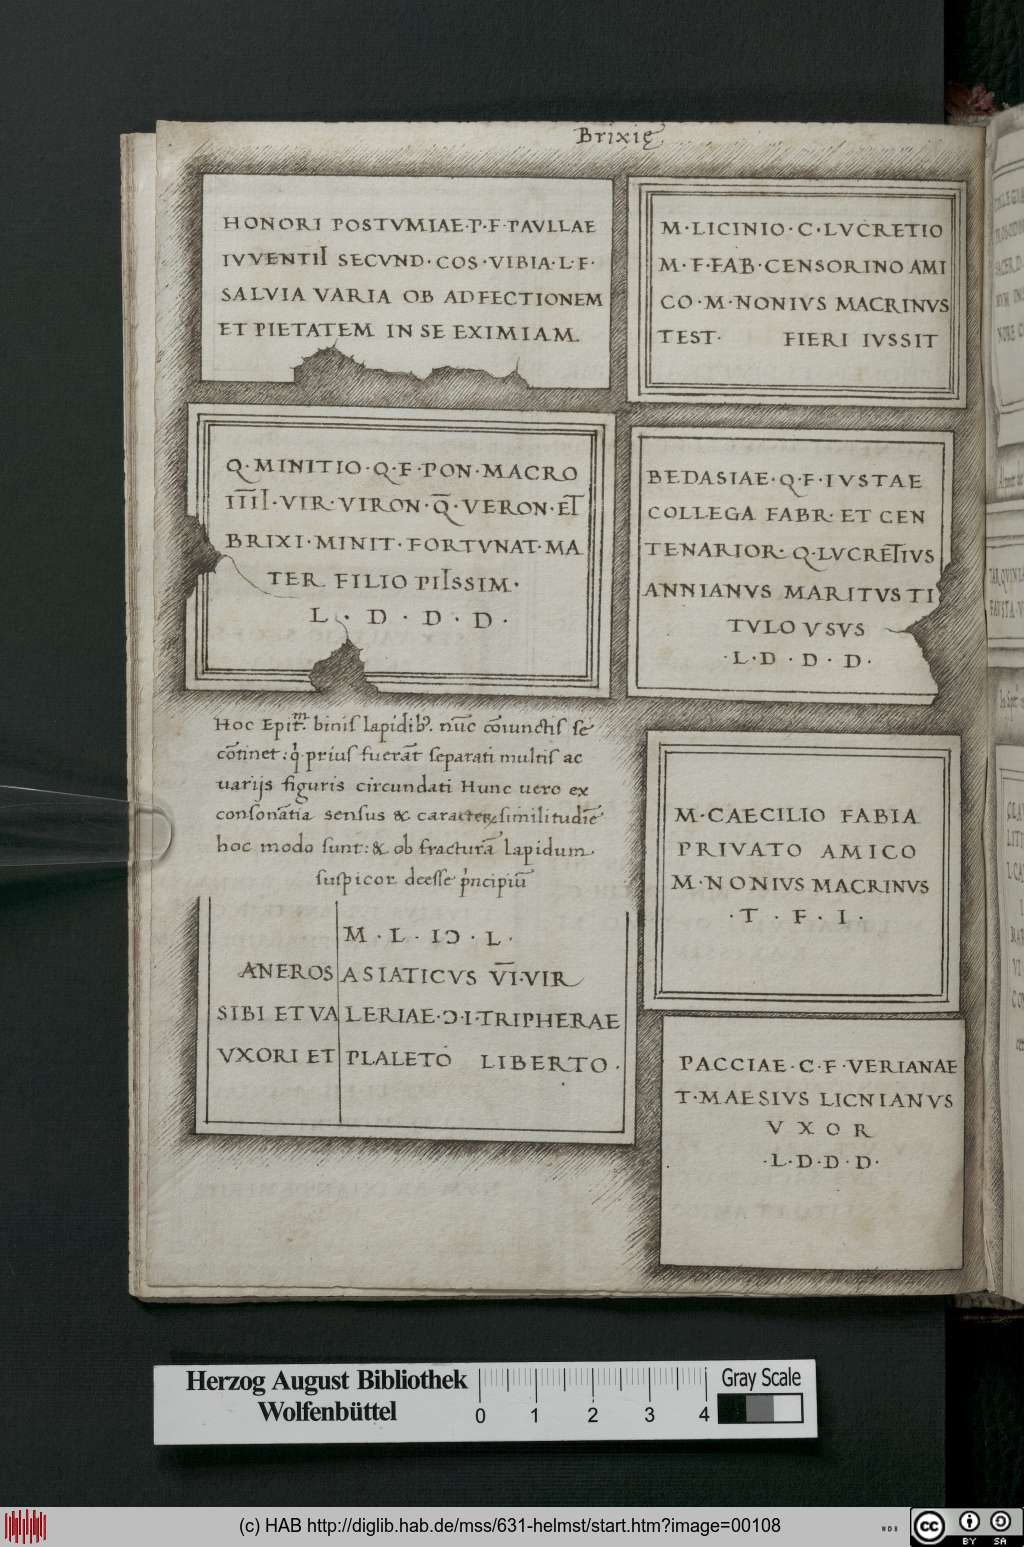 Brixię
HONORI POSTVMIAE·P·F·PAVLLAE
IVVENTII SECVND·COS·VIBIA·L·F·
SALVIA VARIA OB ADFECTIONEM
ET PIETATEM IN SE EXIMIAM
M·LICINIO·C·LVCRETIO
M·F·FAB·CENSORINO AMI
CO·M·NONIVS MACRINVS
TEST· FIERI IVSSIT
Q·MINITIO·Q·F·PON·MACRO
IIII·VIR·VIRON·Q̅·VERON·ET
BRIXI·MINIT·FORTVNAT·MA
TER FILIO PIISSIM·
L·D·D·D·
BEDASIAE·Q·F·IVSTAE
COLLEGA FABR·ET CEN
TENARIOR·Q·LVCRETIVS
ANNIANVS MARITVS TI
TVLO VSVS
·L·D·D·D·
Hoc Epitm̃. binis lapidibꝰ. nũc cõiunctis se
cõtinet: q̇ prius fuerãt separati multis ac
uarijs figuris circundati Hunc uero ex
consonãtia sensus & caracteꝝ similitudiẽ
hoc modo sunt: & ob fracturã lapidum
suspicor deesse pñcipiũ
M·L·IƆ·L·
ANEROS ASIATICVS V̅I̅·VIR
SIBI ET VALERIAE·Ɔ·I·TRIPHERAE
VXORI ET PLALETO LIBERTO·
M·CAECILIO FABIA
PRIVATO AMICO
M·NONIVS MACRINVS
·T·F·I·
PACCIAE·C·F·VERIANAE
T·MAESIVS LICNIANVS
VXOR
·L·D·D·D·
Herzog August Bibliothek
Wolfenbüttel
0 1 2 3 4
Gray Scale
(c) HAB http://diglib.hab.de/mss/631-helmst/start.htm?image=00108
WDB
cc BY SA